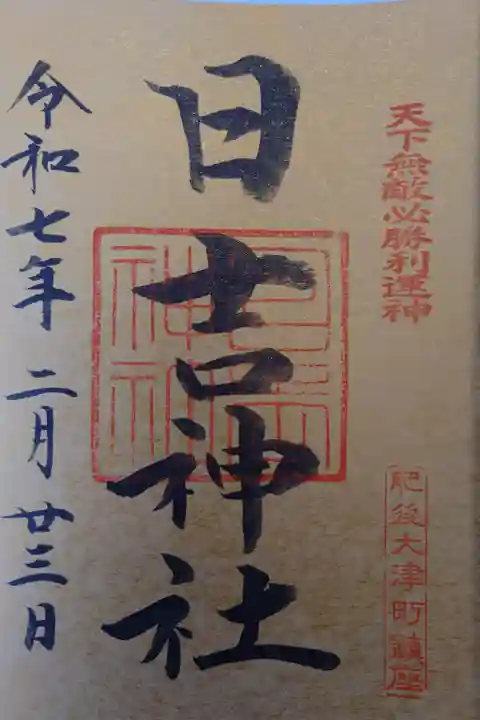 天下無敵必勝利運神
肥後大津町鎮座
日吉神社
令和七年二月廿三日